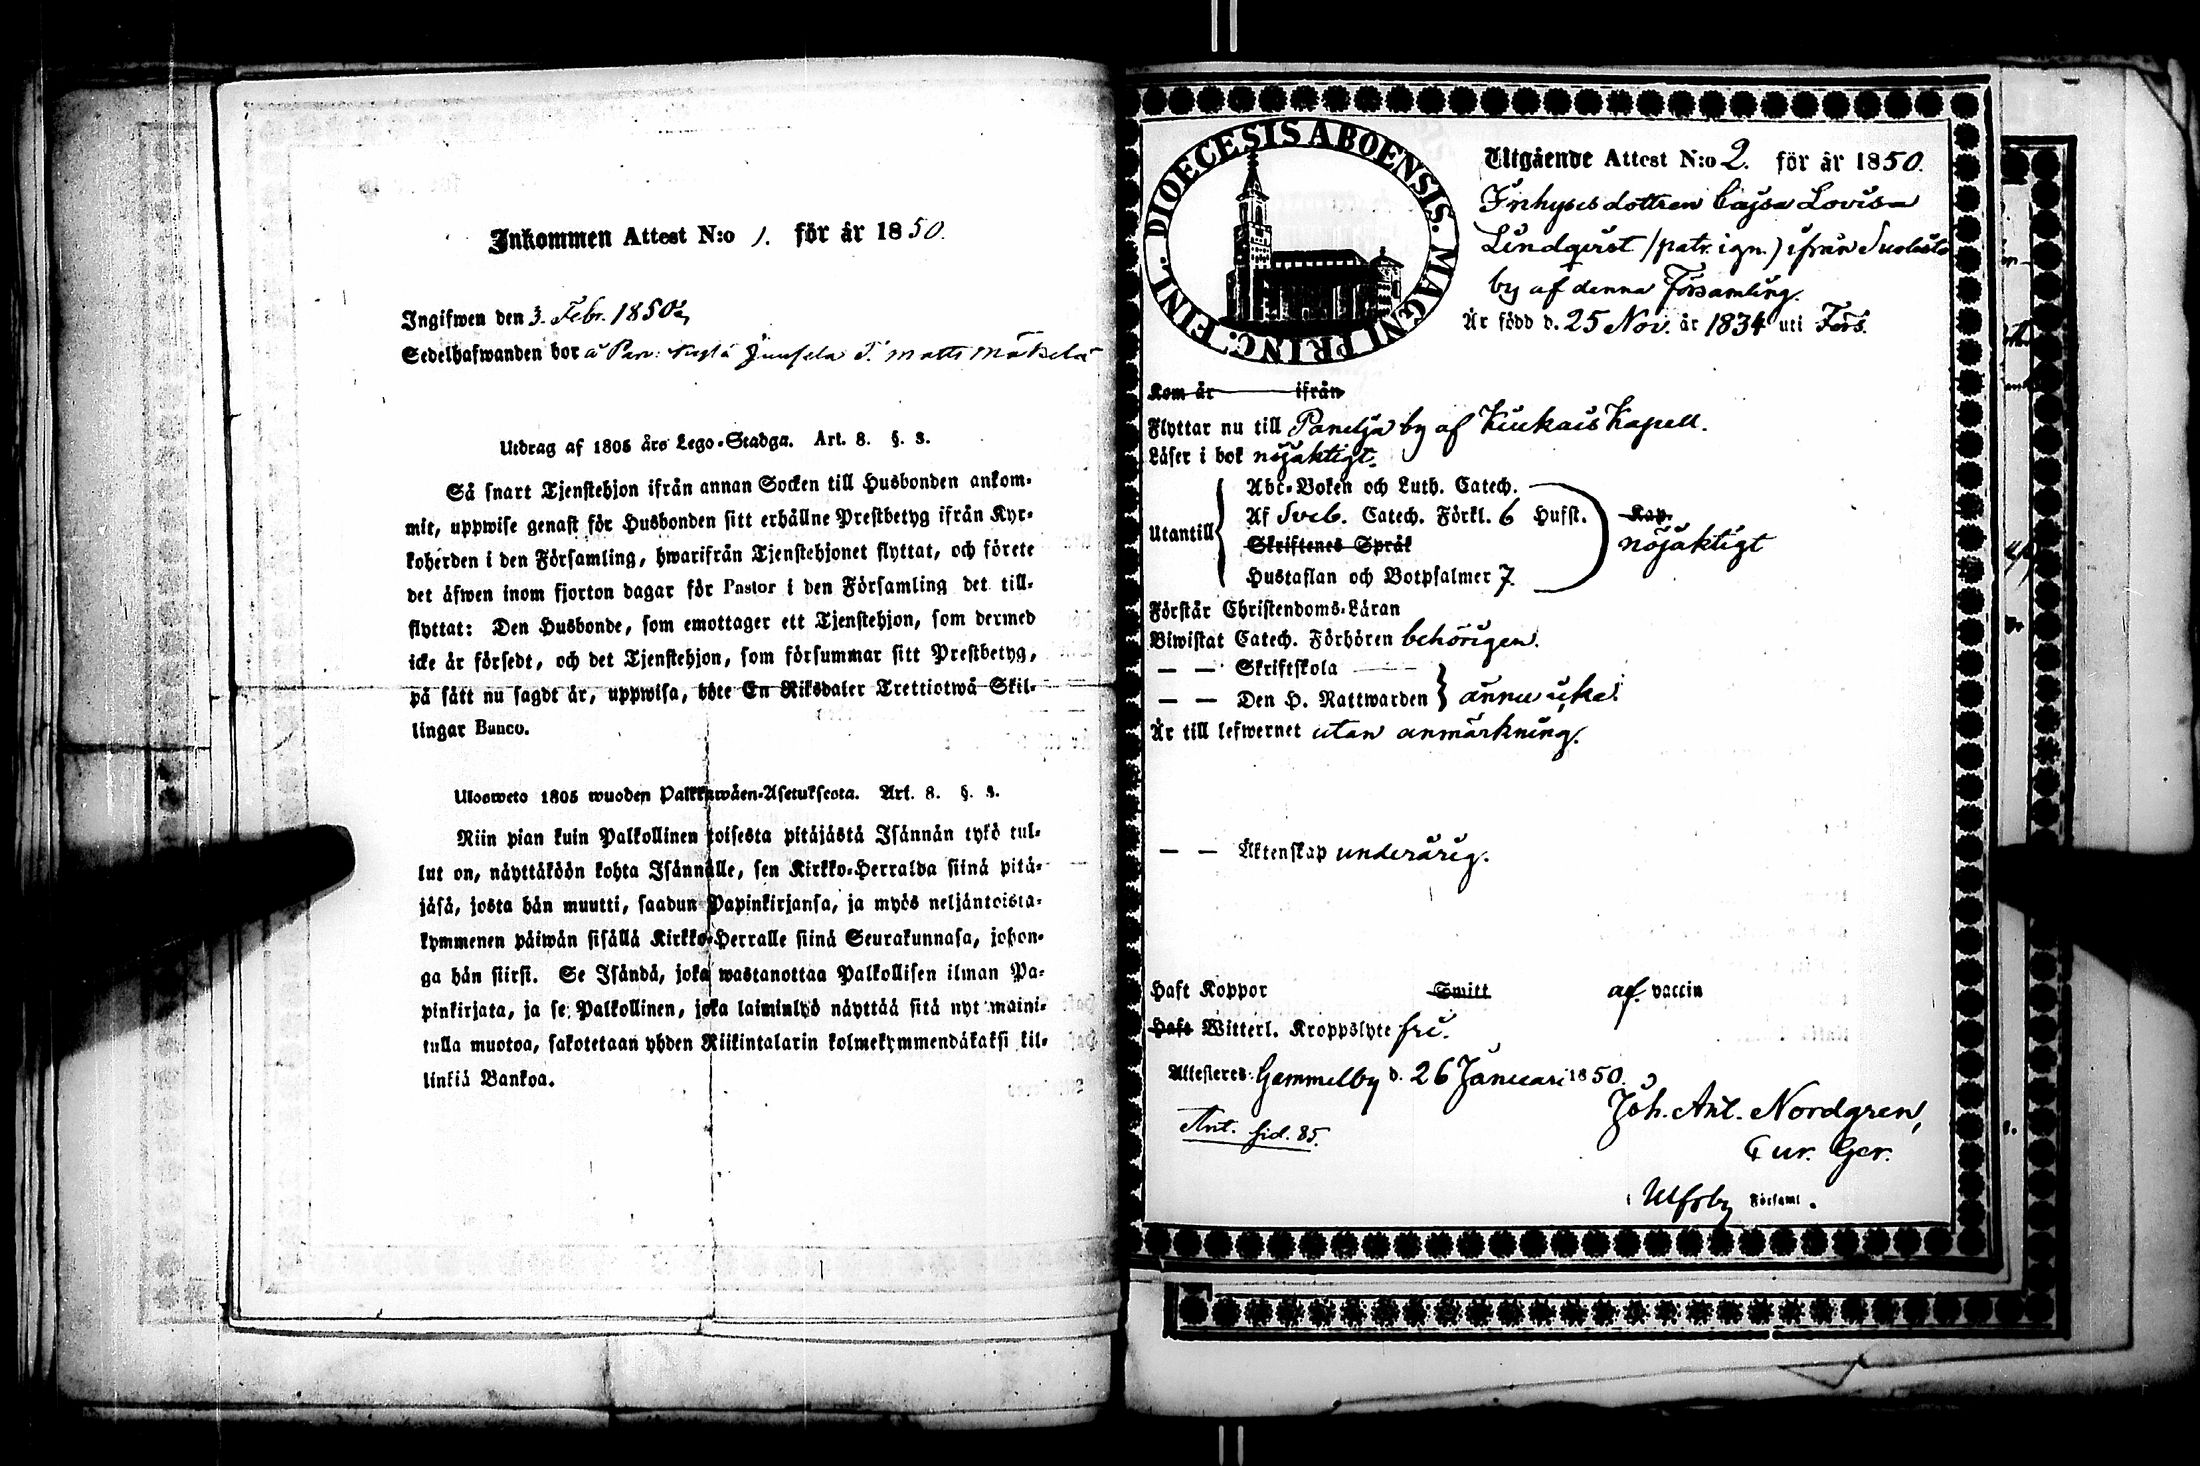 Inkommen Attest N:o 1. för år 1850.
Ingifwen den 3. Febr. 1850
Sedelhafwanden bor å Matts Mäkelä
Utdrag af 1805 års Lego-Stadga. Art. 8. §. 3.
Så snart Tjenstehjon ifrån annan Socken till Husbonden ankom-
mit, uppwise genast för Husbonden sitt erhållne Prestbetyg ifrån Kyr-
koherden i den Församling, hwarifrån Tjenstehjonet flyttat, och förete
det äfwen inom fjorton dagar för Pastor i den Församling det till-
flyttat: Den Husbonde, som emottager ett Tjenstehjon, som dermed
icke är försedt, och det Tjenstehjon, som försummar sitt Prestbetyg,
på sätt nu sagdt är, uppwisa, böte En Riksdaler Trettiotwå Skil-
lingar Banco.
Ulosweto 1805 wuoden Palkkawäen-Asetuksesta. Art. 8. §. 3.
Niin pian kuin Palkollinen toisesta pitäjästä Isännän tykö tul-
lut on, näyttäköön kohta Isännälle, sen Kirkko-Herralda siinä pitä-
jäsä, josta hän muutti, saadun Papinkirjansa, ja myös neljäntoista-
kymmenen päiwän sisällä Kirkko-Herralle siinä Seurakunnasa, johon-
ga hän siirsi. Se Isändä, joka wastanottaa Palkollisen ilman Pa-
pinkirjata, ja se Palkollinen, joka laiminlyö näyttää sitä nyt maini-
tulla muotoa, sakotetaan yhden Riikintalarin kolmekymmendäkaksi kil-
linkiä Bankoa.
DIOECESIS ABOENSIS. MAGNI PRINC. FINL.
Utgående Attest N:o 2. för år 1850.
Inhysesdottren Cajsa Lovisa
Lindqvist (patr. ign.) ifrån
by af denna Församling.
Är född d. 25 Nov. år 1834 uti Förs.
Kom år ifrån
Flyttar nu till Panelja by af Kiukais Kapell.
Läser i bok nöjaktigt.
Abc-Boken och Luth. Catech.
Utantill Af Sveb. Catech. Förkl. 6 Hufst. Kap.
Skriftenes Språk nöjaktigt
Hustaflan och Botpsalmer 7
Förstår Christendoms-Läran
Biwistat Catech. Förhören behörigen.
— — Skriftskola
— — Den H. Nattwarden ännu icke.
Är till lefwernet utan anmärkning.
— — Äktenskap underårig.
Haft Koppor Smitt af vaccin
Haft Witterl. Kroppslyte fri.
Attesteres Gammelby d. 26 Januari 1850.
Ant. sid. 85.
Joh. Ant. Nordgren,
Cur. Ger.
i Ulfsby Församl.